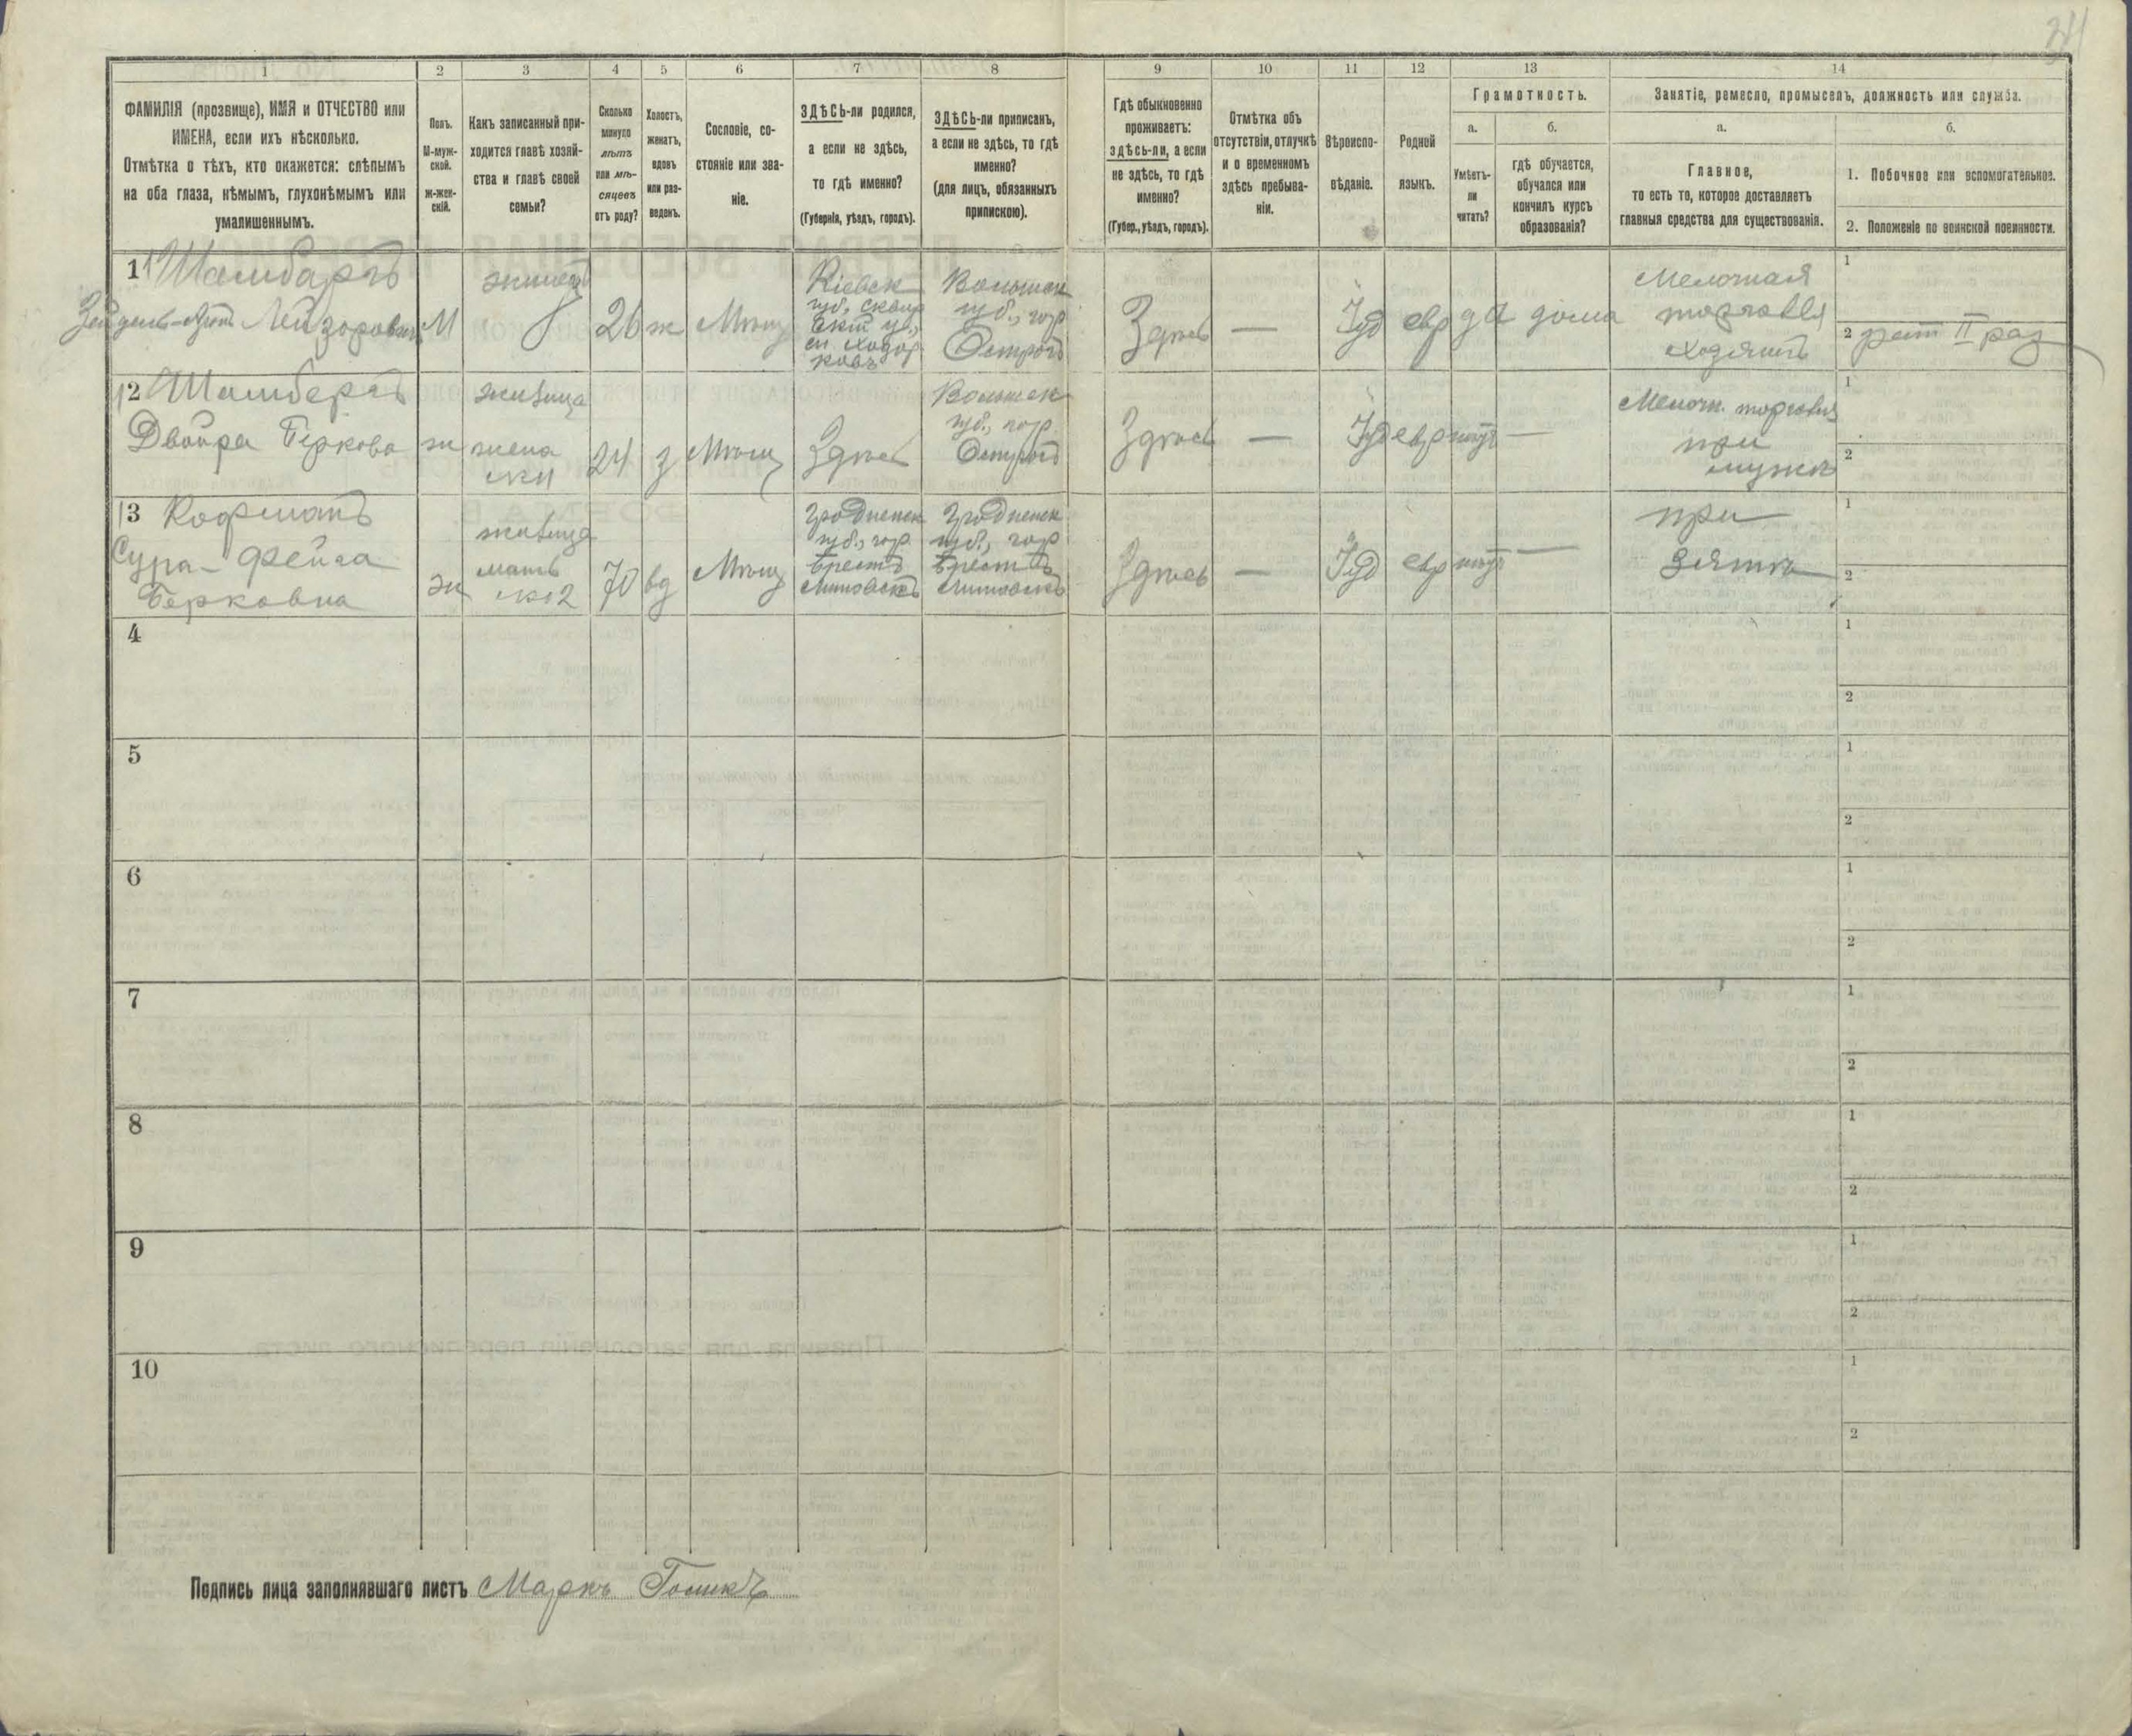 34
1 2 3 4 5 6 7 8 9 10 11 12 13 14
ФАМИЛІЯ (прозвище), ИМЯ и ОТЧЕСТВО или
ИМЕНА, если ихъ нѣсколько.
Отмѣтка о тѣхъ, кто окажется: слѣпымъ
на оба глаза, нѣмымъ, глухонѣмымъ или
умалишеннымъ.
Полъ.
М-муж-
ской.
Ж-жен-
скій.
Какъ записанный при-
ходится главѣ хозяй-
ства и главѣ своей
семьи?
Сколько
минуло
лѣтъ
или мѣ-
сяцевъ
отъ роду?
Холостъ,
женатъ,
вдовъ
или раз-
веденъ.
Сословіе, со-
стояніе или зва-
ніе.
ЗДѢСЬ-ли родился,
а если не здѣсь,
то гдѣ именно?
(Губернія, уѣздъ, городъ).
ЗДѢСЬ-ли приписанъ,
а если не здѣсь, то гдѣ
именно?
(для лицъ, обязанныхъ
припискою).
Гдѣ обыкновенно
проживаетъ:
здѣсь-ли, а если
не здѣсь, то гдѣ
именно?
(Губер., уѣздъ, городъ).
Отмѣтка объ
отсутствіи, отлучкѣ
и о временномъ
здѣсь пребыва-
ніи.
Вѣроиспо-
вѣданіе.
Родной
языкъ.
Грамотность.
а.
Умѣетъ-
ли
читать?
б.
гдѣ обучается,
обучался или
кончилъ курсъ
образованія?
Занятіе, ремесло, промыселъ, должность или служба.
а.
Главное,
то есть то, которое доставляетъ
главныя средства для существованія.
б.
1. Побочное или вспомогательное.
2. Положеніе по воинской повинности.
1
Шамбаргъ
Лейзоровичъ
М
26
ж
Мѣщ
Кіевск
губ., сквир
Волынск
губ., гор
Острогъ
Здѣсь
—
Іуд
евр
да
дома
Мелочная
торговля
1
2 рат II раз
2 Шамбергъ
Двойра Беркова
ж
жилица
жена
№ 1
24
з
Мѣщ
Здѣсь
Волынск
губ., гор.
Острогъ
Здѣсь
—
Іуд
евр
нѣтъ
—
Мелочн. торговля
при
мужѣ
1
2
3 Кофманъ
Сура-Фейга
Берковна
ж
жилица
мать
№ 2
70
вд
Мѣщ
Гродненск
губ., гор
Брестъ
Литовскъ
Гродненск
губ., гор
Брестъ
Литовскъ
Здѣсь
—
Іуд
евр
нѣтъ
—
при
зятѣ
1
2
4
1
2
5
1
2
6
1
2
7
1
2
8
1
2
9
1
2
10
1
2
Подпись лица заполнявшаго листъ Маркъ